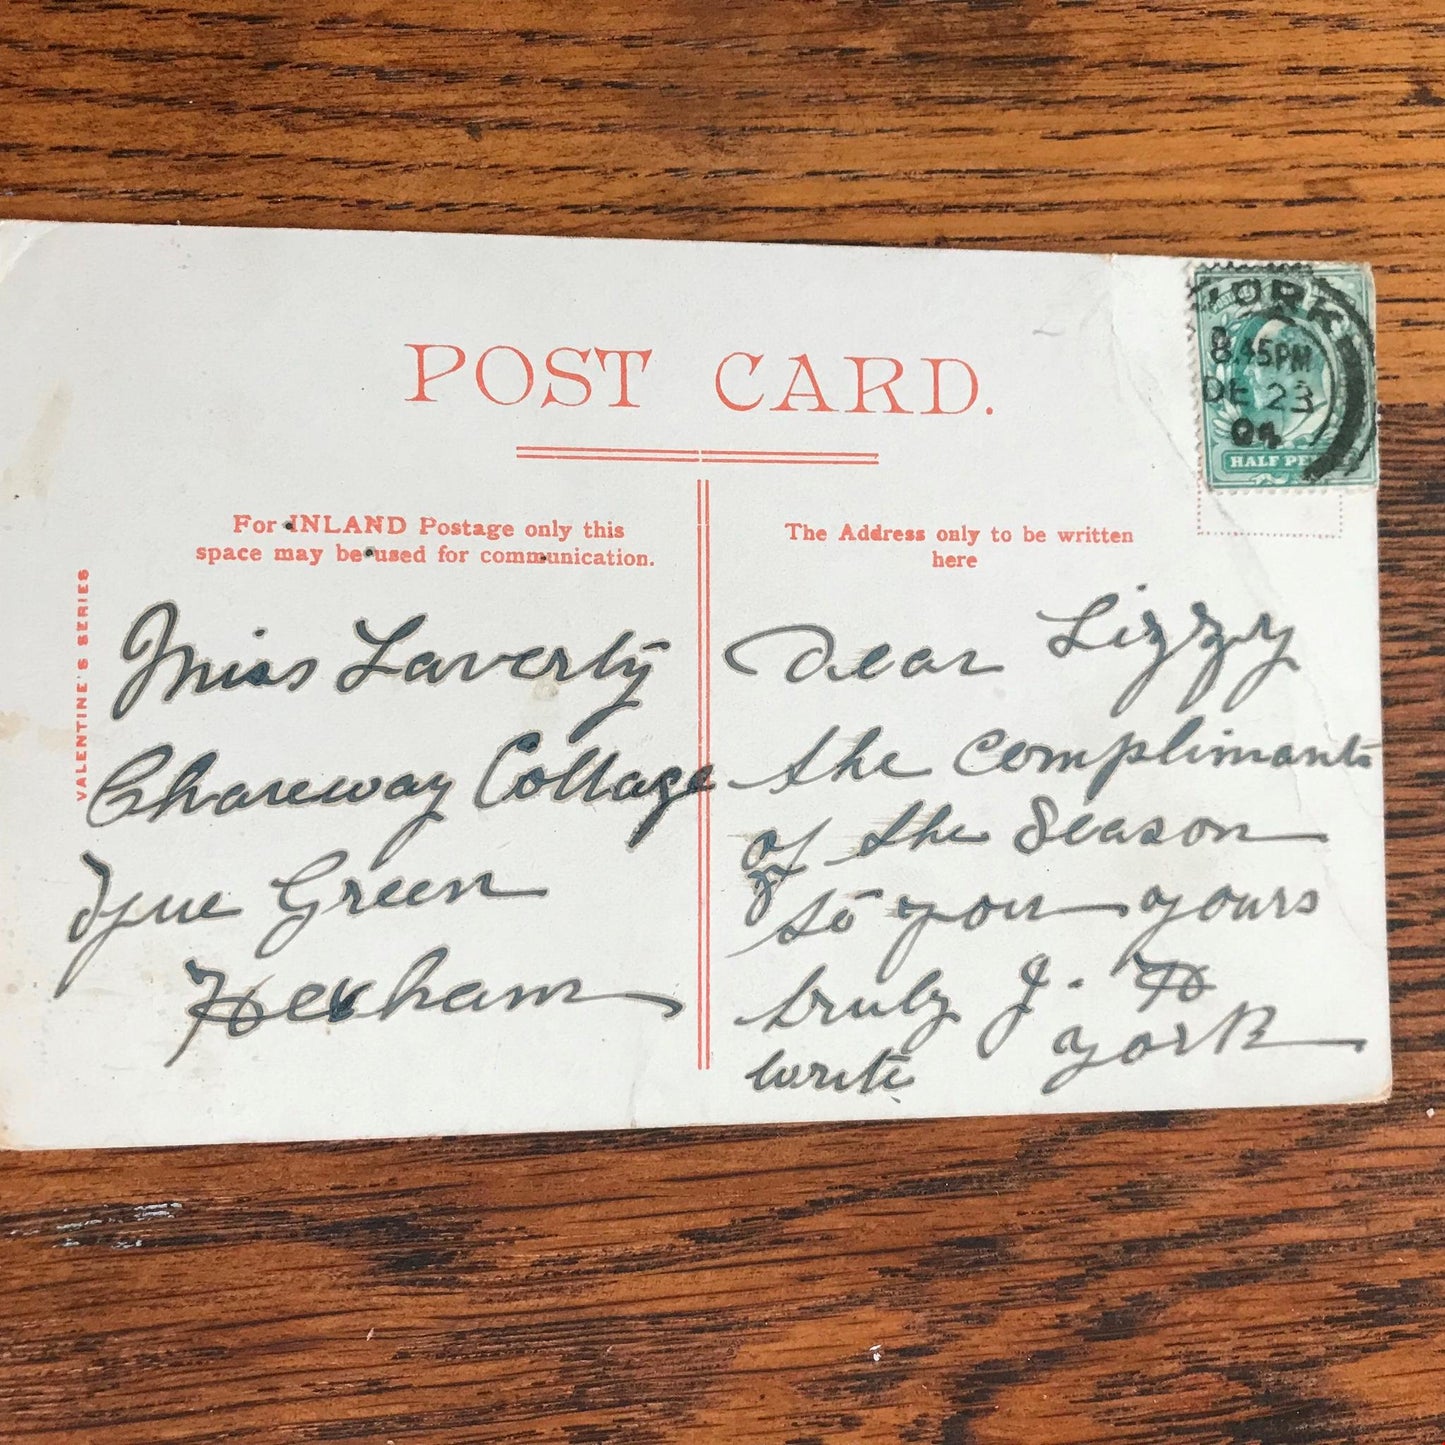 POST CARD.
YORK
8.45PM
DE 23
04
HALF PE
For INLAND Postage only this
space may be used for communication.
The Address only to be written
here
VALENTINE'S SERIES
Miss Laverty
Chareway Cottage
Tyne Green
Hexham
Dear Lizzy
the Complimants
of the Season
to you yours
truly J. H
York
write